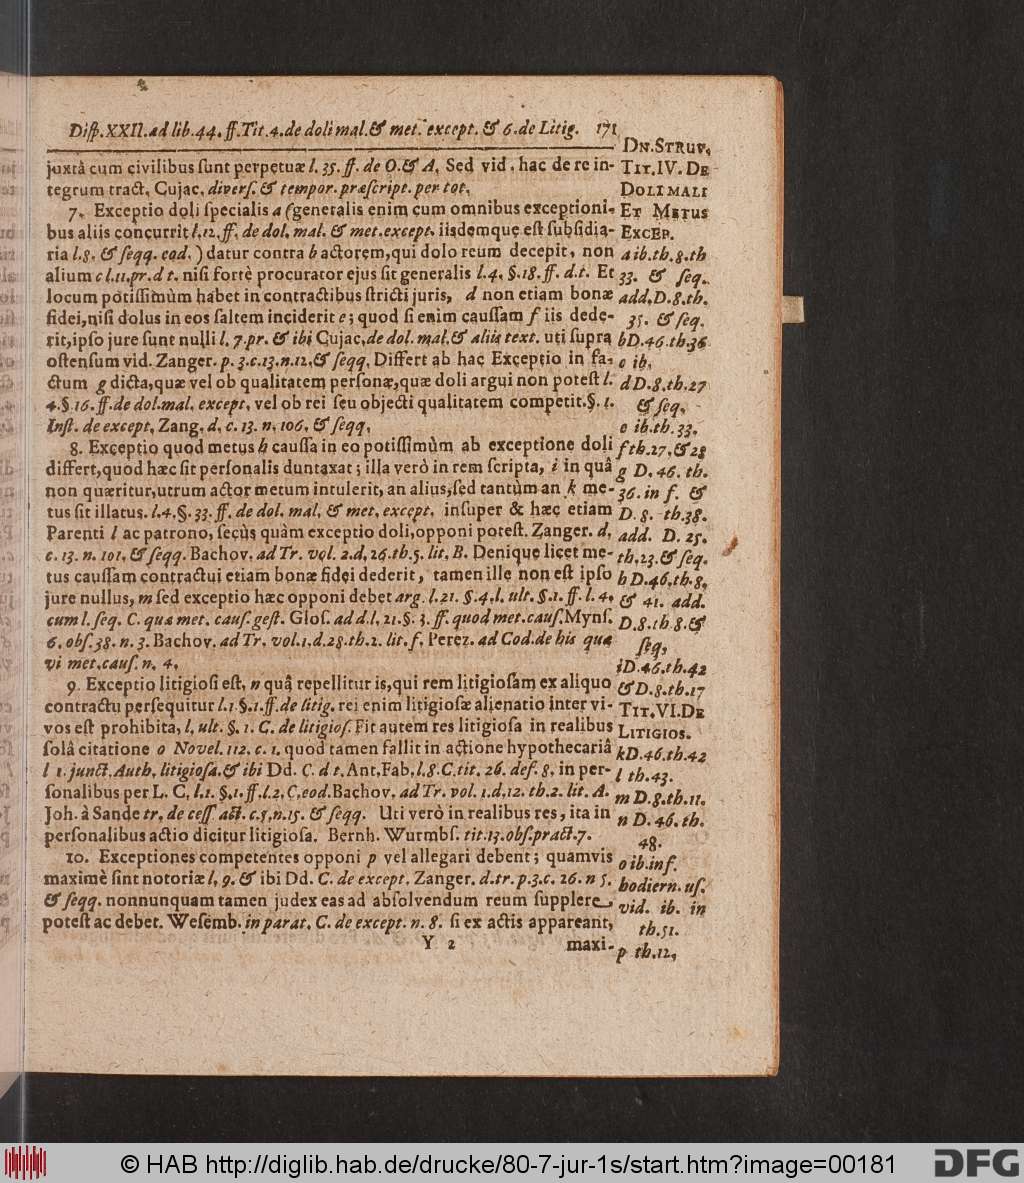 Disp. XXII. ad lib. 44. ff. Tit. 4. de doli mal. & met. except. & 6. de Litig. 171
juxtà cum civilibus sunt perpetuæ l. 35. ff. de O. & A. Sed vid. hac de re in-
tegrum tract. Cujac. divers. & tempor. præscript. per tot.
7. Exceptio doli specialis a (generalis enim cum omnibus exceptioni-
bus aliis concurrit l. 12. ff. de dol. mal. & met. except. iisdemque est subsidia-
ria l. 8. & seqq. eod.) datur contra b actorem, qui dolo reum decepit, non
alium c l. 11. pr. d t. nisi fortè procurator ejus sit generalis l. 4. §. 18. ff. d. t. Et
locum potissimùm habet in contractibus stricti juris, d non etiam bonæ
fidei, nisi dolus in eos saltem inciderit e; quod si enim caussam f iis dede-
rit, ipso jure sunt nulli l. 7. pr. & ibi Cujac. de dol. mal. & aliis text. uti supra
ostensum vid. Zanger. p. 3. c. 13. n. 12. & seqq. Differt ab hac Exceptio in fa-
ctum g dicta, quæ vel ob qualitatem personæ, quæ doli argui non potest l.
4. §. 16. ff. de dol. mal. except. vel ob rei seu objecti qualitatem competit. §. 1.
Inst. de except. Zang. d. c. 13. n. 106. & seqq.
8. Exceptio quod metus h caussa in eo potissimùm ab exceptione doli
differt, quod hæc sit personalis duntaxat; illa verò in rem scripta, i in quâ
non quæritur, utrum actor metum intulerit, an alius, sed tantùm an k me-
tus sit illatus. l. 4. §. 33. ff. de dol. mal. & met. except. insuper & hæc etiam
Parenti l ac patrono, secùs quàm exceptio doli, opponi potest. Zanger. d.
c. 13. n. 101. & seqq. Bachov. ad Tr. vol. 2. d. 26. th. 5. lit. B. Denique licet me-
tus caussam contractui etiam bonæ fidei dederit, tamen ille non est ipso
jure nullus, m sed exceptio hæc opponi debet arg. l. 21. §. 4. l. ult. §. 1. ff. l. 4.
cum l. seq. C. quæ met. caus. gest. Glos. ad d. l. 21. §. 3. ff. quod met. caus. Myns.
6. obs. 38. n. 3. Bachov. ad Tr. vol. 1. d. 28. th. 2. lit. f. Perez. ad Cod. de his quæ
vi met. caus. n. 4.
9. Exceptio litigiosi est, n quâ repellitur is, qui rem litigiosam ex aliquo
contractu persequitur l. 1 §. 1. ff. de litig. rei enim litigiosæ alienatio inter vi-
vos est prohibita, l. ult. §. 1. C. de litigios. Fit autem res litigiosa in realibus
solâ citatione o Novel. 112. c. 1. quod tamen fallit in actione hypothecariâ
l 1. junct. Auth. litigiosa. & ibi Dd. C. d t. Ant. Fab. l. 8. C. tit. 26. def. 8. in per-
sonalibus per L. C. l. 1. §. 1. ff. l. 2. C. eod. Bachov. ad Tr. vol. 1. d. 12. th. 2. lit. A.
Joh. à Sande tr. de cess. act. c. 5. n. 15. & seqq. Uti verò in realibus res, ita in
personalibus actio dicitur litigiosa. Bernh. Wurmbs. tit. 13. obs. pract. 7.
10. Exceptiones competentes opponi p vel allegari debent; quamvis
maximè sint notoriæ l. 9. & ibi Dd. C. de except. Zanger. d. tr. p. 3. c. 26. n 5.
& seqq. nonnunquam tamen judex eas ad absolvendum reum supplere,
potest ac debet. Wesemb. in parat. C. de except. n. 8. si ex actis appareant,
Y 2 maxi-
DN. STRUV.
TIT. IV. DE
DOLI MALI
ET METUS
EXCEP.
a ib. th. 8. th
33. & seq.
add. D. 8. th.
35. & seq.
b D. 46. th. 36
c ib.
d D. 8. th. 27
& seq.
e ib. th. 33.
f th. 27. & 28
g D. 46. th.
36. in f. &
D. 8. th. 38.
add. D. 25.
th. 23. & seq.
h D. 46. th. 8.
& 41. add.
D. 8. th. 8. &
seq.
i D. 46. th. 42
& D. 8. th. 17
TIT. VI. DE
LITIGIOS.
k D. 46. th. 42
l th. 43.
m D. 8. th. 11.
n D. 46. th.
48.
o ib. inf.
hodiern. us.
vid. ib. in
th. 51.
p th. 12.
© HAB http://diglib.hab.de/drucke/80-7-jur-1s/start.htm?image=00181
DFG